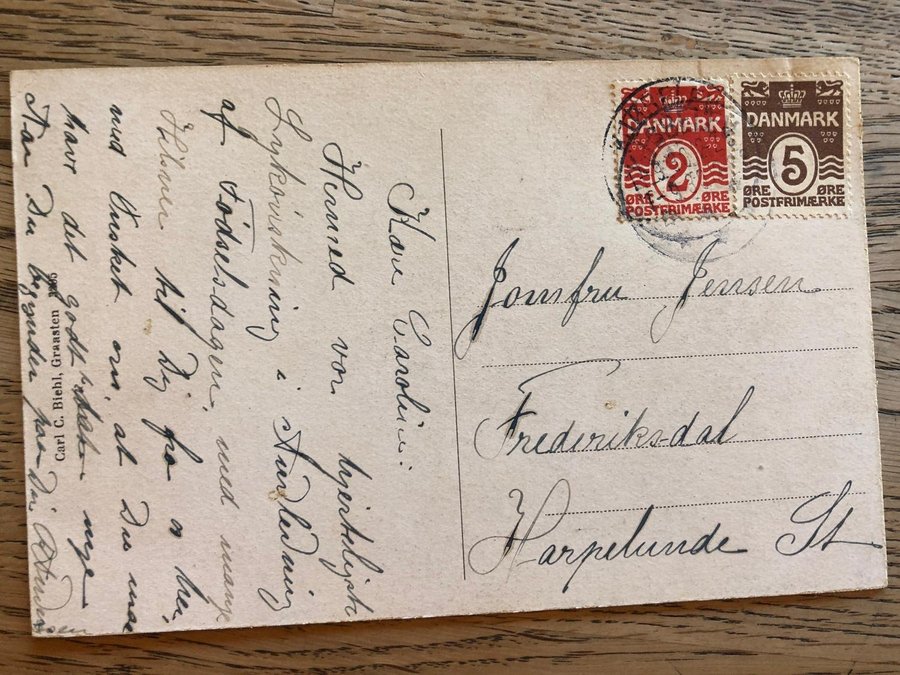 Kære Caroline:
Herved vor hjerteligste
Lykønskning i Anledning
af Fødselsdagen, med mange
Hilsner til Dig fra os her,
med Ønsket om, at Du maa
have det godt i det nye
Aar Du begynder paa Din
Carl C. Biehl, Graasten
DANMARK
2
ØRE ØRE
POSTFRIMÆRKE
DANMARK
5
ØRE ØRE
POSTFRIMÆRKE
Jomfru Jensen
Frederiksdal
Harpelunde St